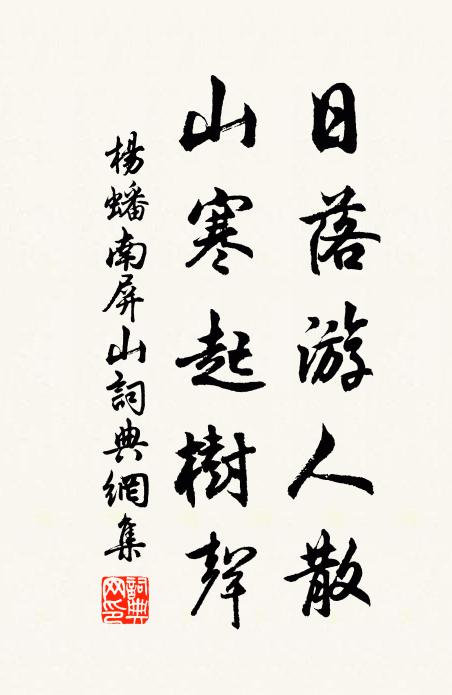 日落游人散
山寒起樹聲
楊蟠南屏山詞典網集
詞典
网印